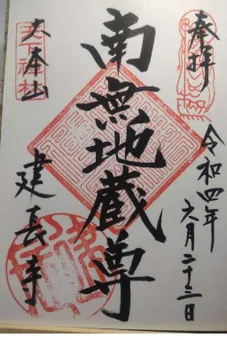 奉拝
令和四年
六月二十三日
南無地蔵尊
大本山
建長寺